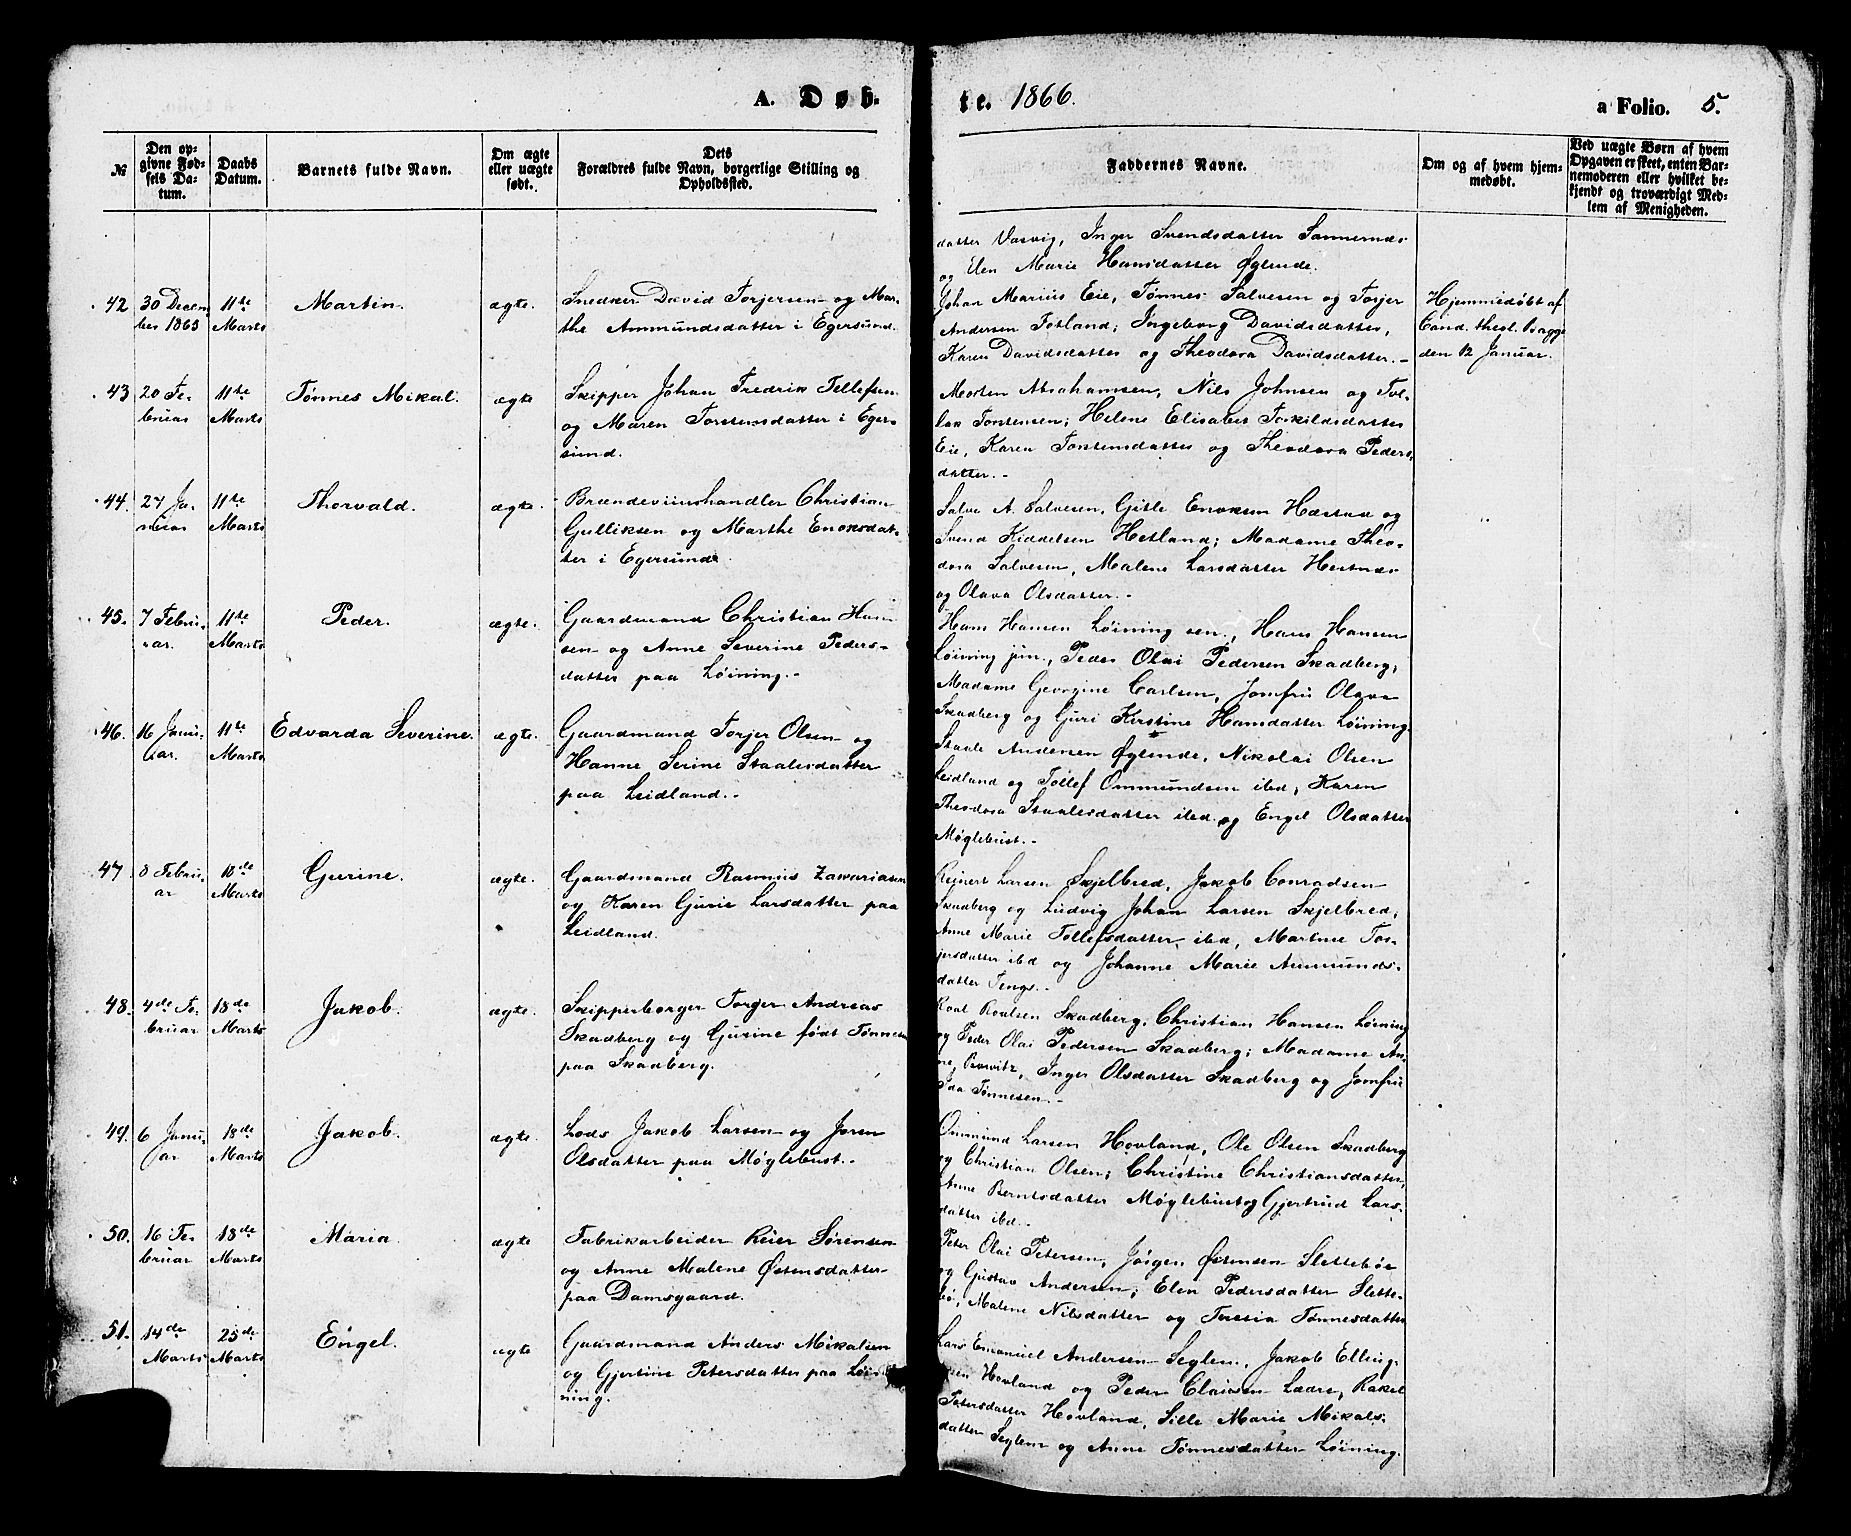 A. Døb-
te. 1866.
a Folio. 5.
№
Den op-
givne Fød-
sels Da-
tum.
Daabs
Datum.
Barnets fulde Navn.
Om ægte
eller uægte
født.
Dets
Forældres fulde Navn, borgerlige Stilling og
Opholdssted.
Faddernes Navne.
Om og af hvem hjem-
medøbt.
Ved uægte Børn af hvem
Opgaven er skeet, enten Bar-
nemoderen eller hvilket be-
kjendt og troværdigt Med-
lem af Menigheden.
datter Vasvig, Inger Svendsdatter Sannernæs
og Elen Marie Hansdatter Øglende.
42 30 Decem-
ber 1865
11te
Marts
Martin.
ægte.
Snedker David Torjersen og Mar-
the Ammundsdatter i Egersund.
Johan Marius Eie, Tønnes Salvesen og Torjer
Andersen Fotland; Ingeborg Davidsdatter,
Karen Davidsdatter og Theodora Davidsdatter.-
Hjemmedøbt af
Cand. theol. Bagge
den 12 Januar.
43 20 Fe-
bruar
11te
Marts
Tønnes Mikal.
ægte
Skipper Johan Fredrik Tellefsen
og Maren Torstensdatter i Eger-
sund.
Morten Abrahamsen, Nils Johnsen og Tol-
lak Torstensen; Helene Elisabet Torkildsdatter
Eie, Karen Torstensdatter og Theodora Peders-
datter.-
44. 27 Ja-
nuar
11te
Marts
Thorvald.
ægte.
Brændeviinshandler Christian
Gulliksen og Marthe Enoksdat-
ter i Egersund
Salve A. Salvesen, Gitle Enoksen Hæstad og
Svend Kiddelsen Hetland; Madame Theo-
dora Salvesen, Malene Larsdatter Hestnæs
og Olava Olsdatter.-
45. 7 Febru-
ar.
11te
Marts
Peder.
ægte.
Gaardmand Christian Han-
sen og Anne Severine Peders-
datter paa Løining.-
Hans Hansen Løining sen., Hans Hansen
Løining jun., Peder Olai Pedersen Skadberg;
Madame Georgine Carlsen, Jomfru Olava
Skadberg og Guri Kirstine Hansdatter Løining.
46. 16 Janu-
ar.
11te
Marts
Edvarda Severine.
ægte.
Gaardmand Torjer Olsen og
Hanne Serine Staalesdatter
paa Leidland.-
Staale Andersen Øglende, Nikolai Olsen
Leidland og Tollef Ommundsen ibd; Karen
Theodora Staalesdatter ibd. og Engel Olsdatter
Møglebust.-
47 8 Febru-
ar
18de
Marts
Gurine.
ægte.
Gaardmand Rasmus Zakariasen
og Karen Gurie Larsdatter paa
Leidland.
Reinert Larsen Skjelbred, Jakob Conradsen
Skadberg og Ludvig Johan Larsen Skjelbred;
Anne Marie Tollefsdatter ibd, Martine Tor-
jersdatter ibd og Johanne Marie Ammunds-
datter Tengs.
48. 4de Fe-
bruar
18de
Marts
Jakob.
ægte.
Skipperborger Torger Andreas
Skadberg og Gurine født Tønnesen
paa Skadberg.
Roal Roalsen Skadberg, Christian Hansen Løining
og Peder Olai Pedersen Skadberg; Madame An-
ne, Inger Olsdatter Skadberg og Jomfru
Ida Tønnesen.-
49. 6 Janu-
ar
18de
Marts
Jakob.
ægte.
Lods Jakob Larsen og Joren
Olsdatter paa Møglebust.-
Ommund Larsen Hovland, Ole Olsen Skadberg
og Christian Olsen; Christine Christiansdatter,
Anne Berntsdatter Møglebust og Gjertrud Lars-
datter ibd.-
50. 16 Fe-
bruar
18de
Marts
Maria.
ægte
Fabrikarbeider Reier Sørensen
og Anne Malene Østensdatter
paa Damsgaard.
Peter Olai Petersen, Jørgen Østensen Slettebøe
og Gustav Andersen; Elen Pedersdatter Slette-
bø, Malene Nilsdatter og Teresia Tønnesdatter
51. 14de
Marts
25de
Marts
Engel.
ægte
Gaardmand Anders Mikalsen
og Gjertine Petersdatter paa Løi-
ning.
Lars Emanuel Andersen Seglem, Jakob Elling-
sen Hovland og Peder Claisen Lædre; Rakel
Petersdatter Hovland, Sille Marie Mikals-
datter Seglem og Anne Tønnesdatter Løining.